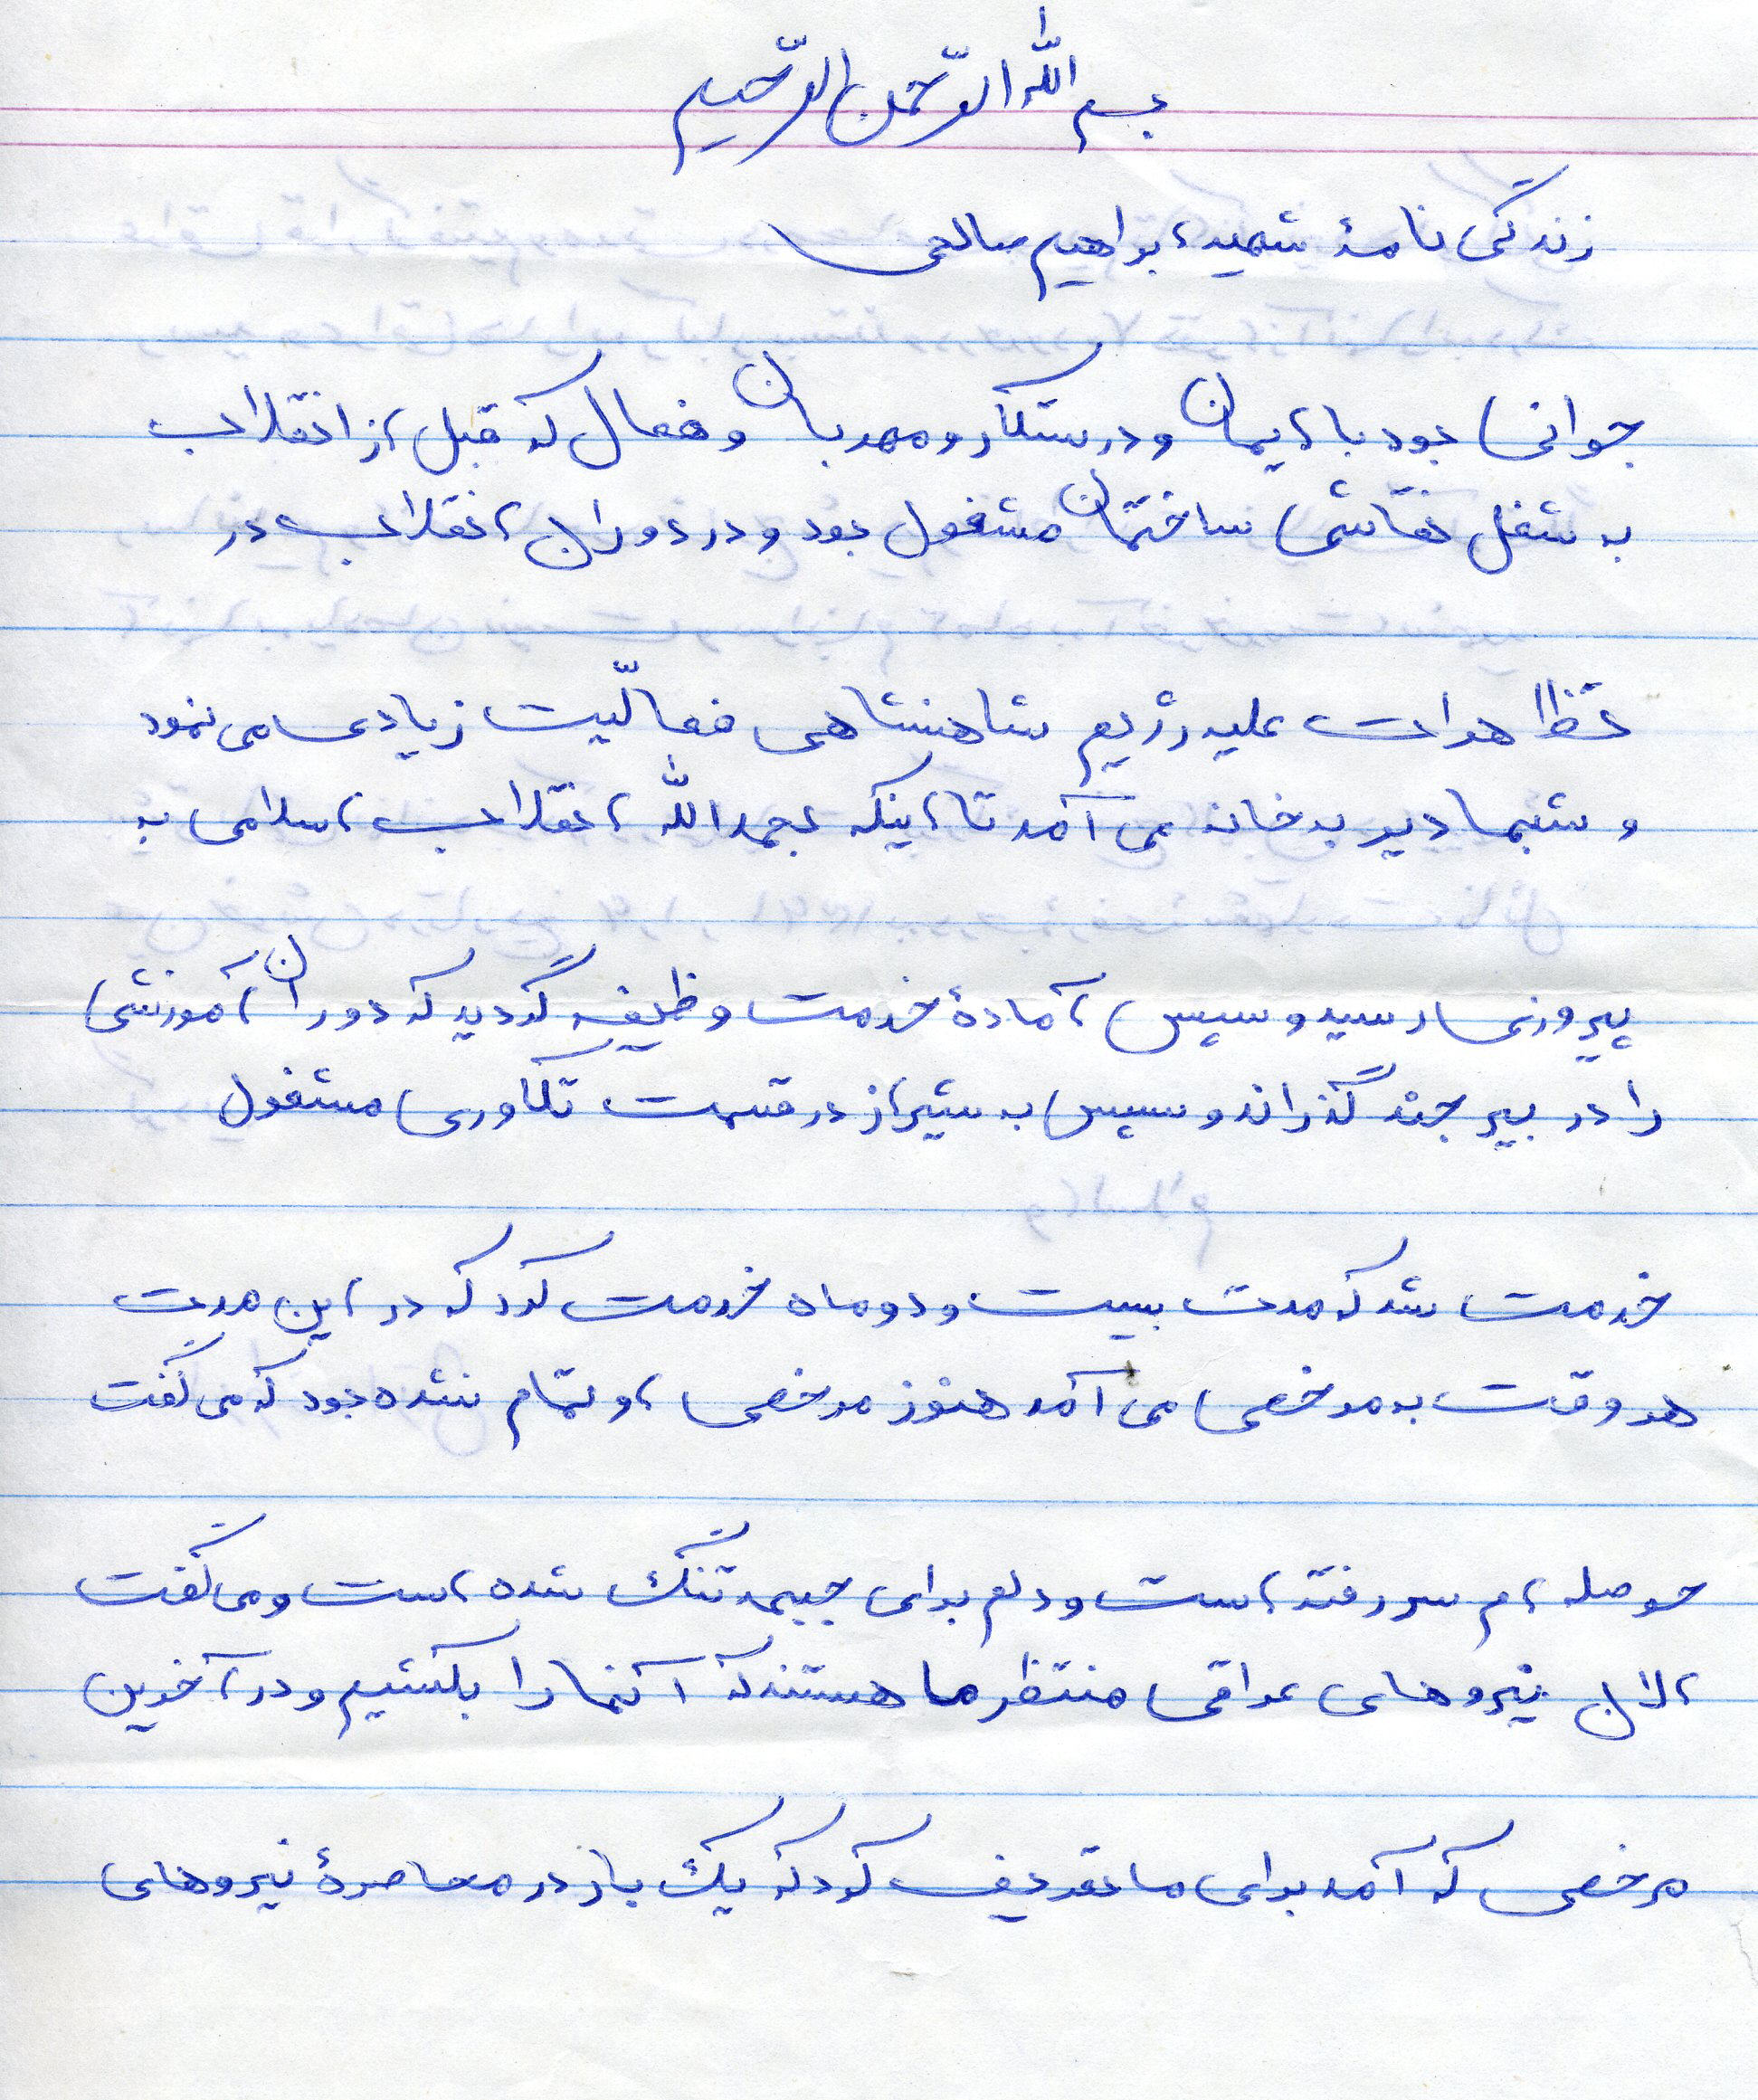 بسم الله الرّحمن الرّحیم
زندگی نامهٔ شهید ابراهیم صالحی
جوانی بود با ایمان و درستکار و مهربان و فعال که قبل از انقلاب
به شغل نقاشی ساختمان مشغول بود و در دوران انقلاب در
تظاهرات علیه رژیم شاهنشاهی فعالّیت زیادی می نمود
و شبها دیر به خانه می آمد تا اینکه بحمدالله انقلاب اسلامی به
پیروزی رسید و سپس آمادهٔ خدمت وظیفه گردید که دوران آموزشی
را در بیرجند گذراند و سپس به شیراز در قسمت تکاوری مشغول
خدمت شد که مدت بیست و دو ماه خدمت کرد که در این مدت
هر وقت به مرخصی می آمد هنوز مرخصی او تمام نشده بود که می گفت
حوصله ام سر رفته است و دلم برای جبهه تنگ شده است و می گفت
الان نیروهای عراقی منتظر ما هستند که آنها را بکشیم و در آخرین
مرخصی که آمد برای ما تعریف کرد که یک بار در محاصرهٔ نیروهای